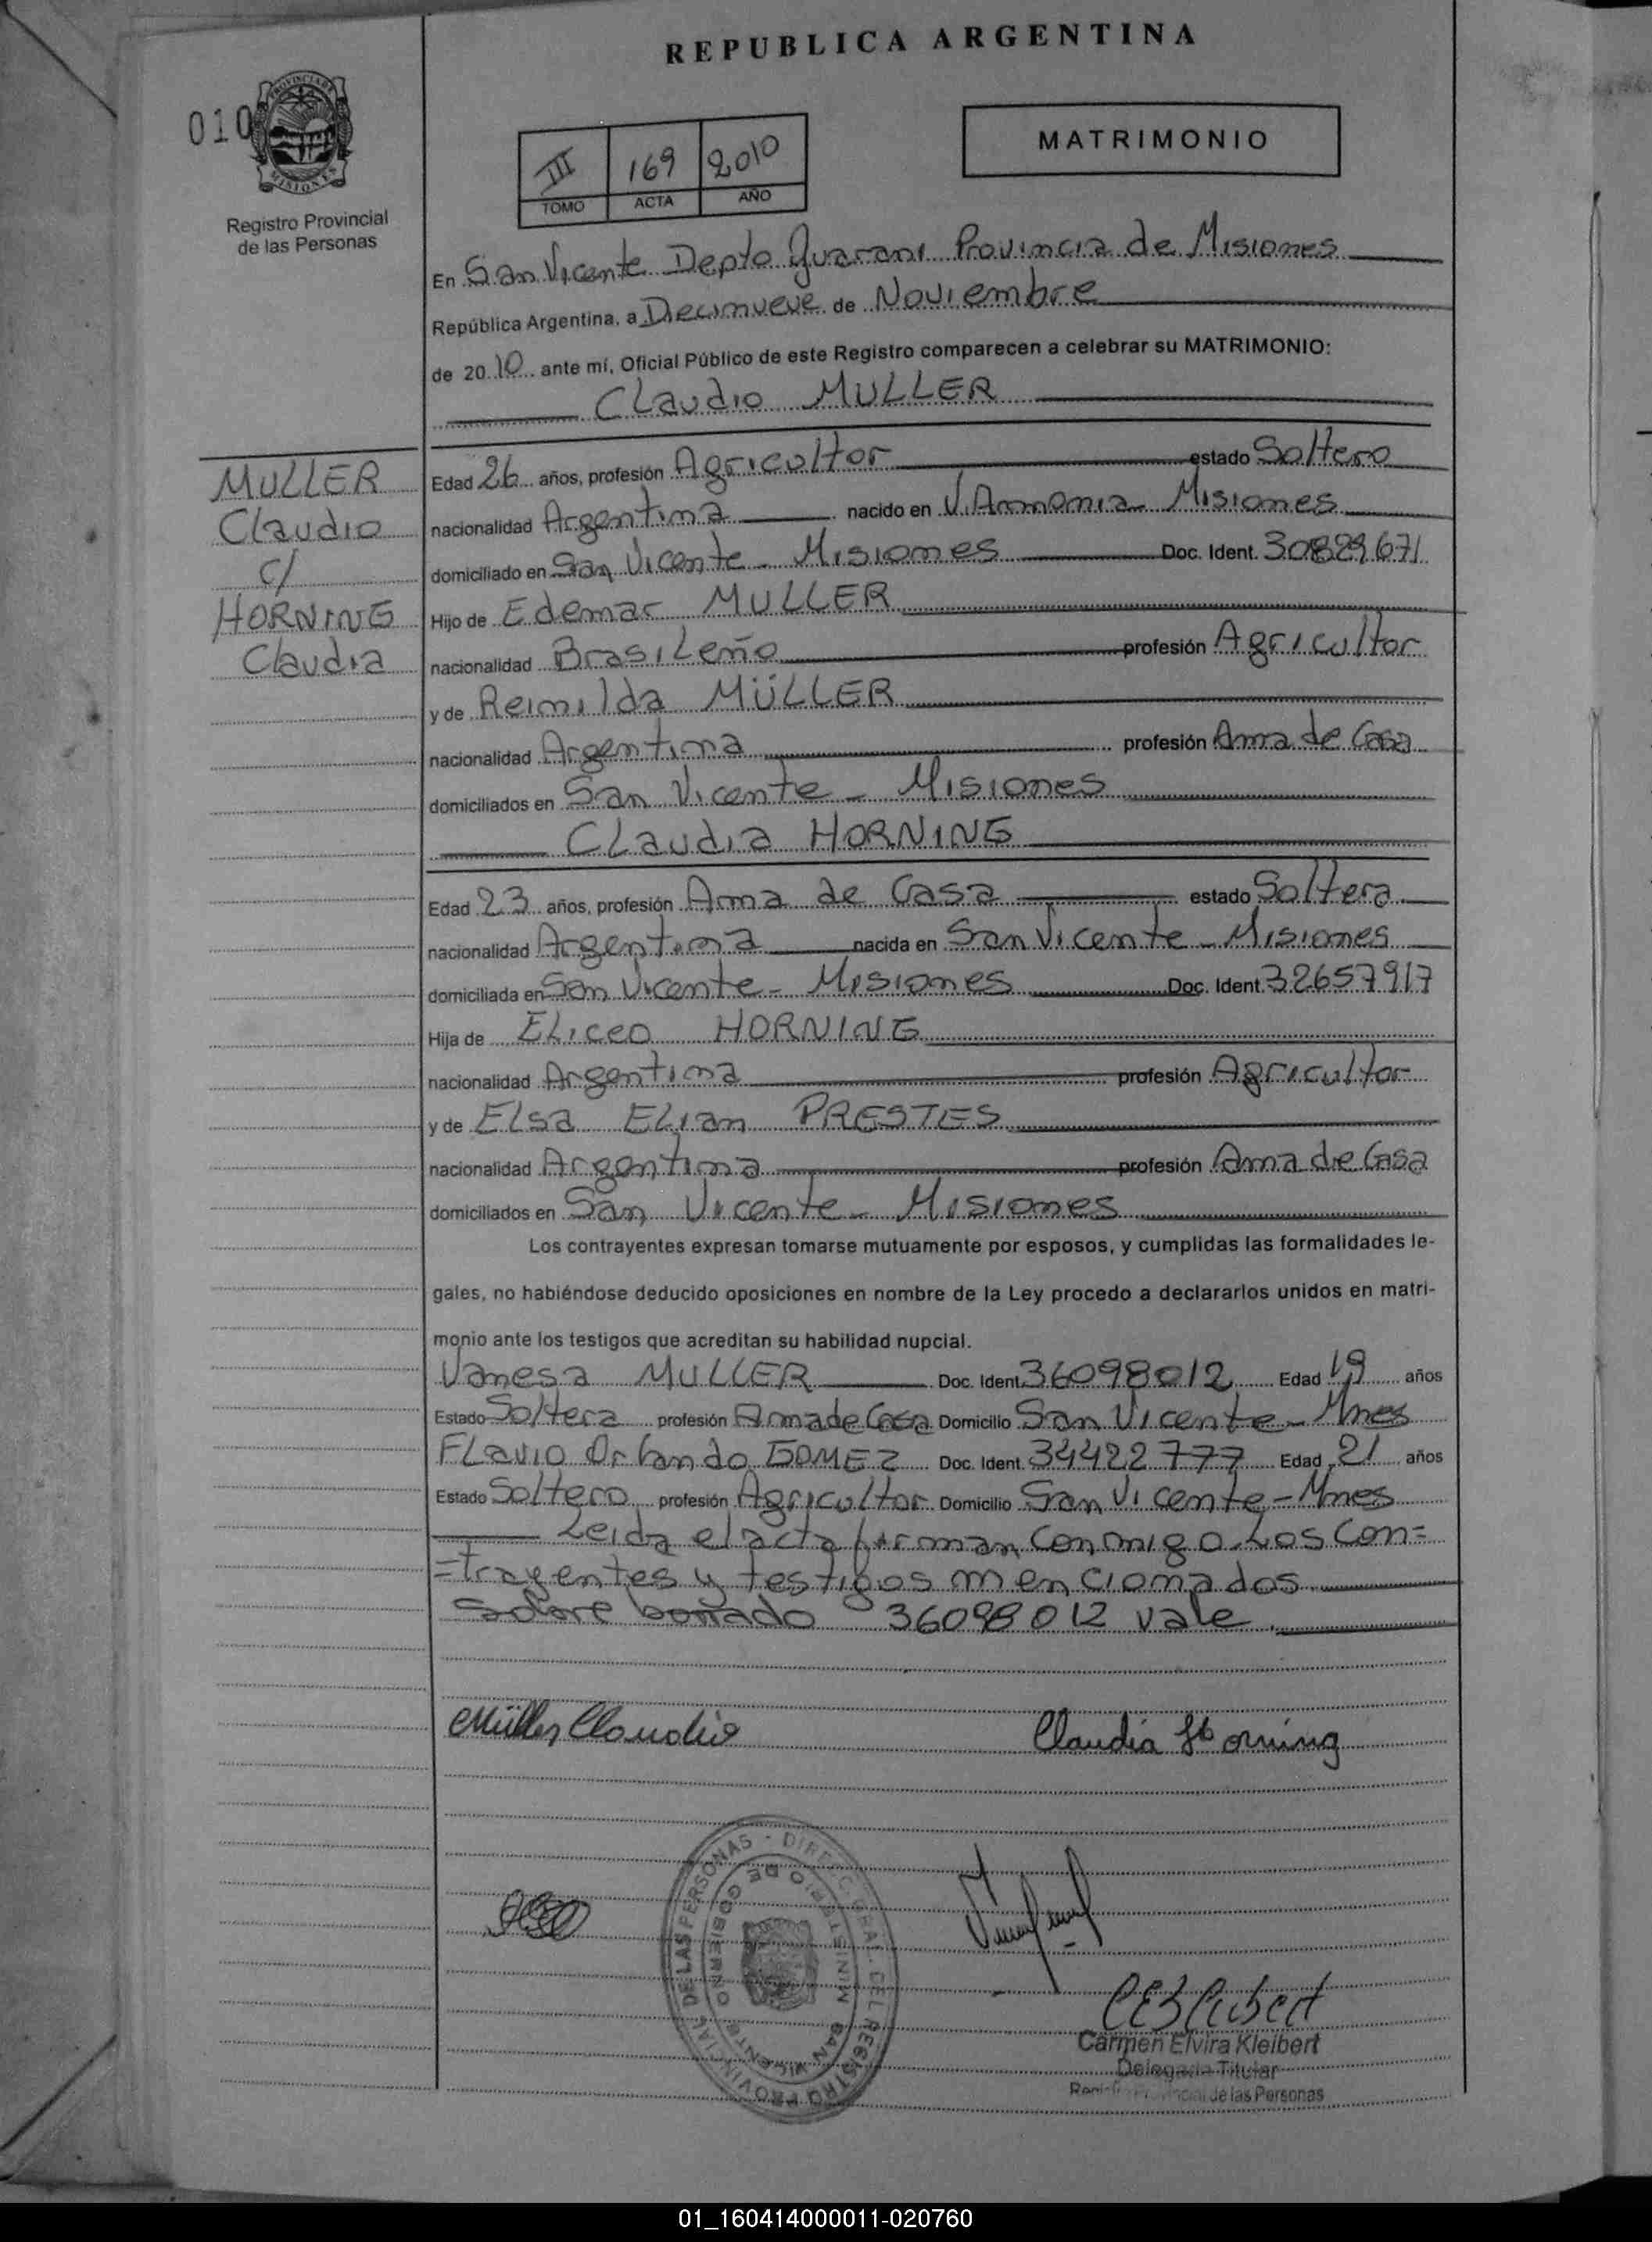 REPUBLICA ARGENTINA
010
PROVINCIA DE
MISIONES
Registro Provincial
de las Personas
MATRIMONIO
III 169 2010
TOMO ACTA AÑO
En San Vicente Depto Guarani Provincia de Misiones
República Argentina, a Diecinueve de Noviembre
de 2010 ante mí, Oficial Público de este Registro comparecen a celebrar su MATRIMONIO:
Claudio MULLER
MULLER
Claudio
c/
HORNING
Claudia
Edad 26 años, profesión Agricultor estado Soltero
nacionalidad Argentina nacido en V. Armonia Misiones
domiciliado en San Vicente - Misiones Doc. Ident. 30829671
Hijo de Edemar MULLER
nacionalidad Brasileño profesión Agricultor
y de Reinilda MÜLLER
nacionalidad Argentina profesión Ama de Casa
domiciliados en San Vicente - Misiones
Claudia HORNING
Edad 23 años, profesión Ama de Casa estado Soltera
nacionalidad Argentina nacida en San Vicente - Misiones
domiciliada en San Vicente - Misiones Doc. Ident. 32657917
Hija de Eliceo HORNING
nacionalidad Argentina profesión Agricultor
y de Elsa Elian PRESTES
nacionalidad Argentina profesión Ama de Casa
domiciliados en San Vicente - Misiones
Los contrayentes expresan tomarse mutuamente por esposos, y cumplidas las formalidades le-
gales, no habiéndose deducido oposiciones en nombre de la Ley procedo a declararlos unidos en matri-
monio ante los testigos que acreditan su habilidad nupcial.
Vanesa MULLER Doc. Ident. 36098012 Edad 19 años
Estado Soltera profesión Ama de Casa Domicilio San Vicente - Mnes
Flavio Orlando GOMEZ Doc. Ident. 34422777 Edad 21 años
Estado Soltero profesión Agricultor Domicilio San Vicente - Mnes
Leida el acta firman conmigo Los con=
=trayentes y testigos mencionados
Sobre borrado 36098012 vale
Müller Claudio
Claudia Horning
DIRECC. GRAL. DEL REGISTRO PROVINCIAL DE LAS PERSONAS -
MINISTERIO DE GOBIERNO
SAN VICENTE
Carmen Elvira Kleibert
Delegada Titular
Registro Provincial de las Personas
01_160414000011-020760